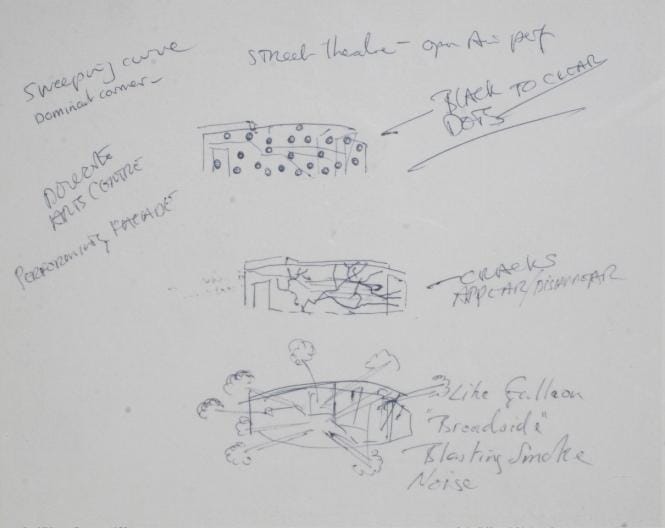 Sweeping curve
Dominant corner –
Street theatre – open Air perf
BLACK TO CLEAR
DOTS
ARTS CENTRE
PERFORMING FACADE
CRACKS
APPEAR/DISAPPEAR
Like Galleon
"Broadside"
Blasting Smoke
Noise